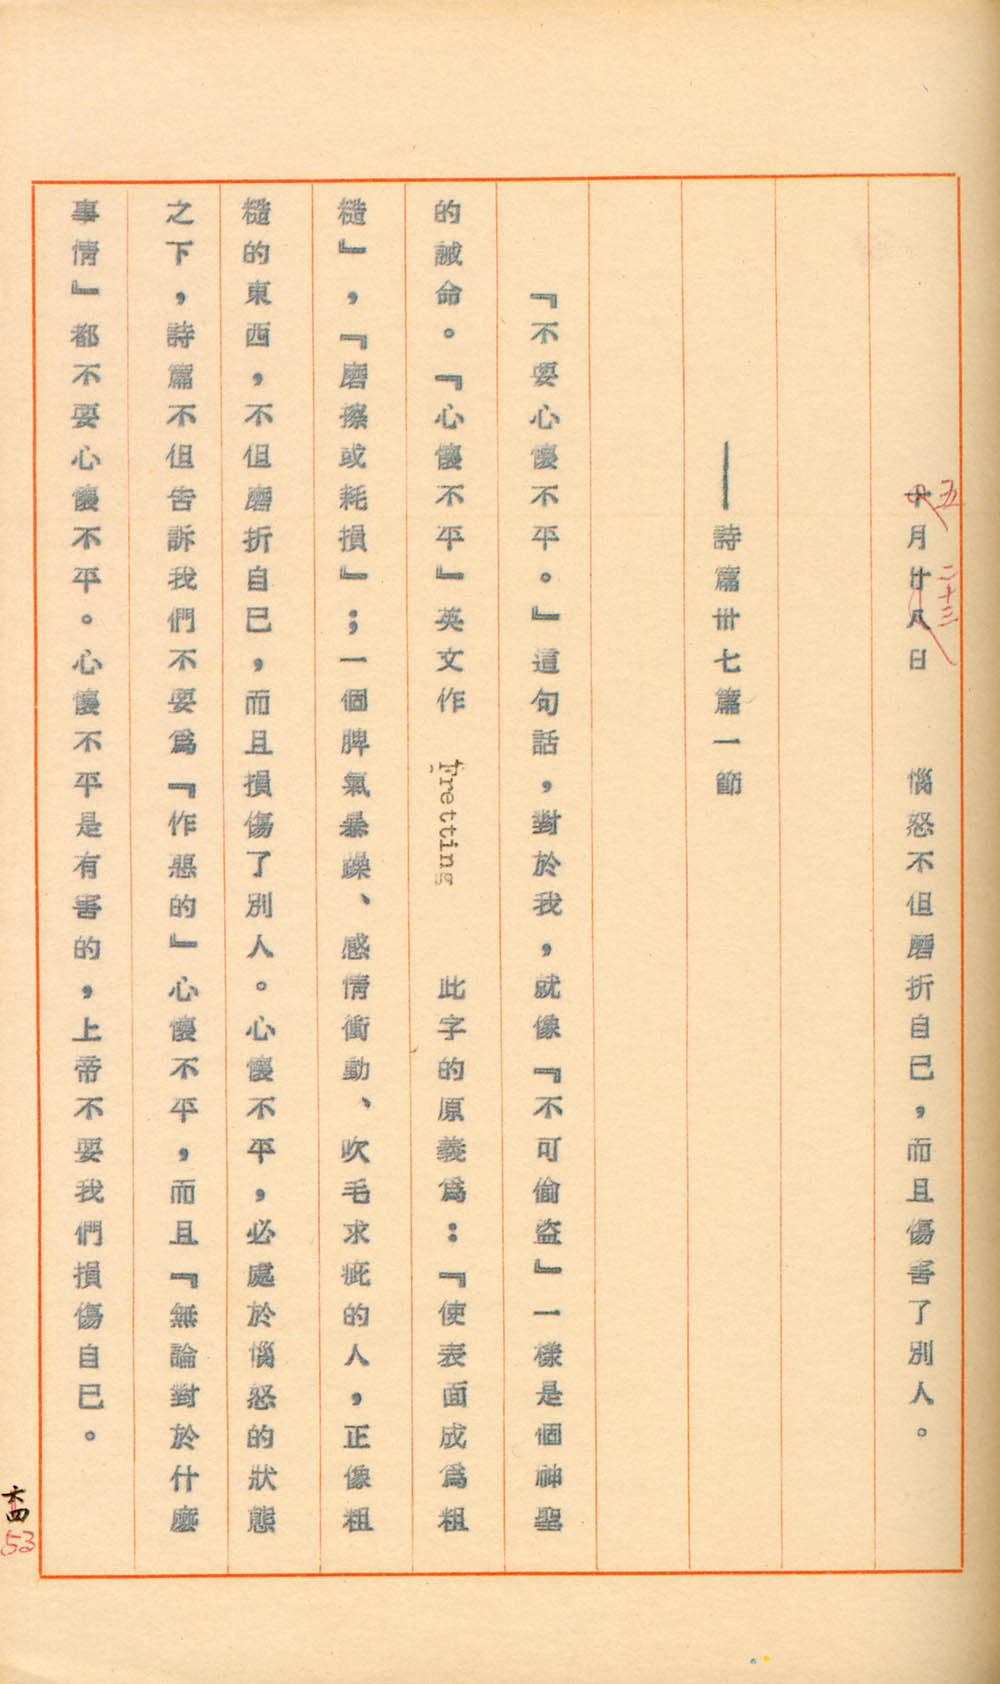 十月廿八日 惱怒不但磨折自已，而且傷害了別人。
五 二十三
——詩篇卅七篇一節
『不要心懷不平。』這句話，對於我，就像『不可偷盜』一樣是個神聖
的誡命。『心懷不平』英文作 Fretting 此字的原義為：『使表面成為粗
糙』，『磨擦或耗損』；一個脾氣暴躁、感情衝動、吹毛求疵的人，正像粗
糙的東西，不但磨折自已，而且損傷了別人。心懷不平，必處於惱怒的狀態
之下，詩篇不但告訴我們不要為『作惡的』心懷不平，而且『無論對於什麼
事情』都不要心懷不平。心懷不平是有害的，上帝不要我們損傷自已。
53